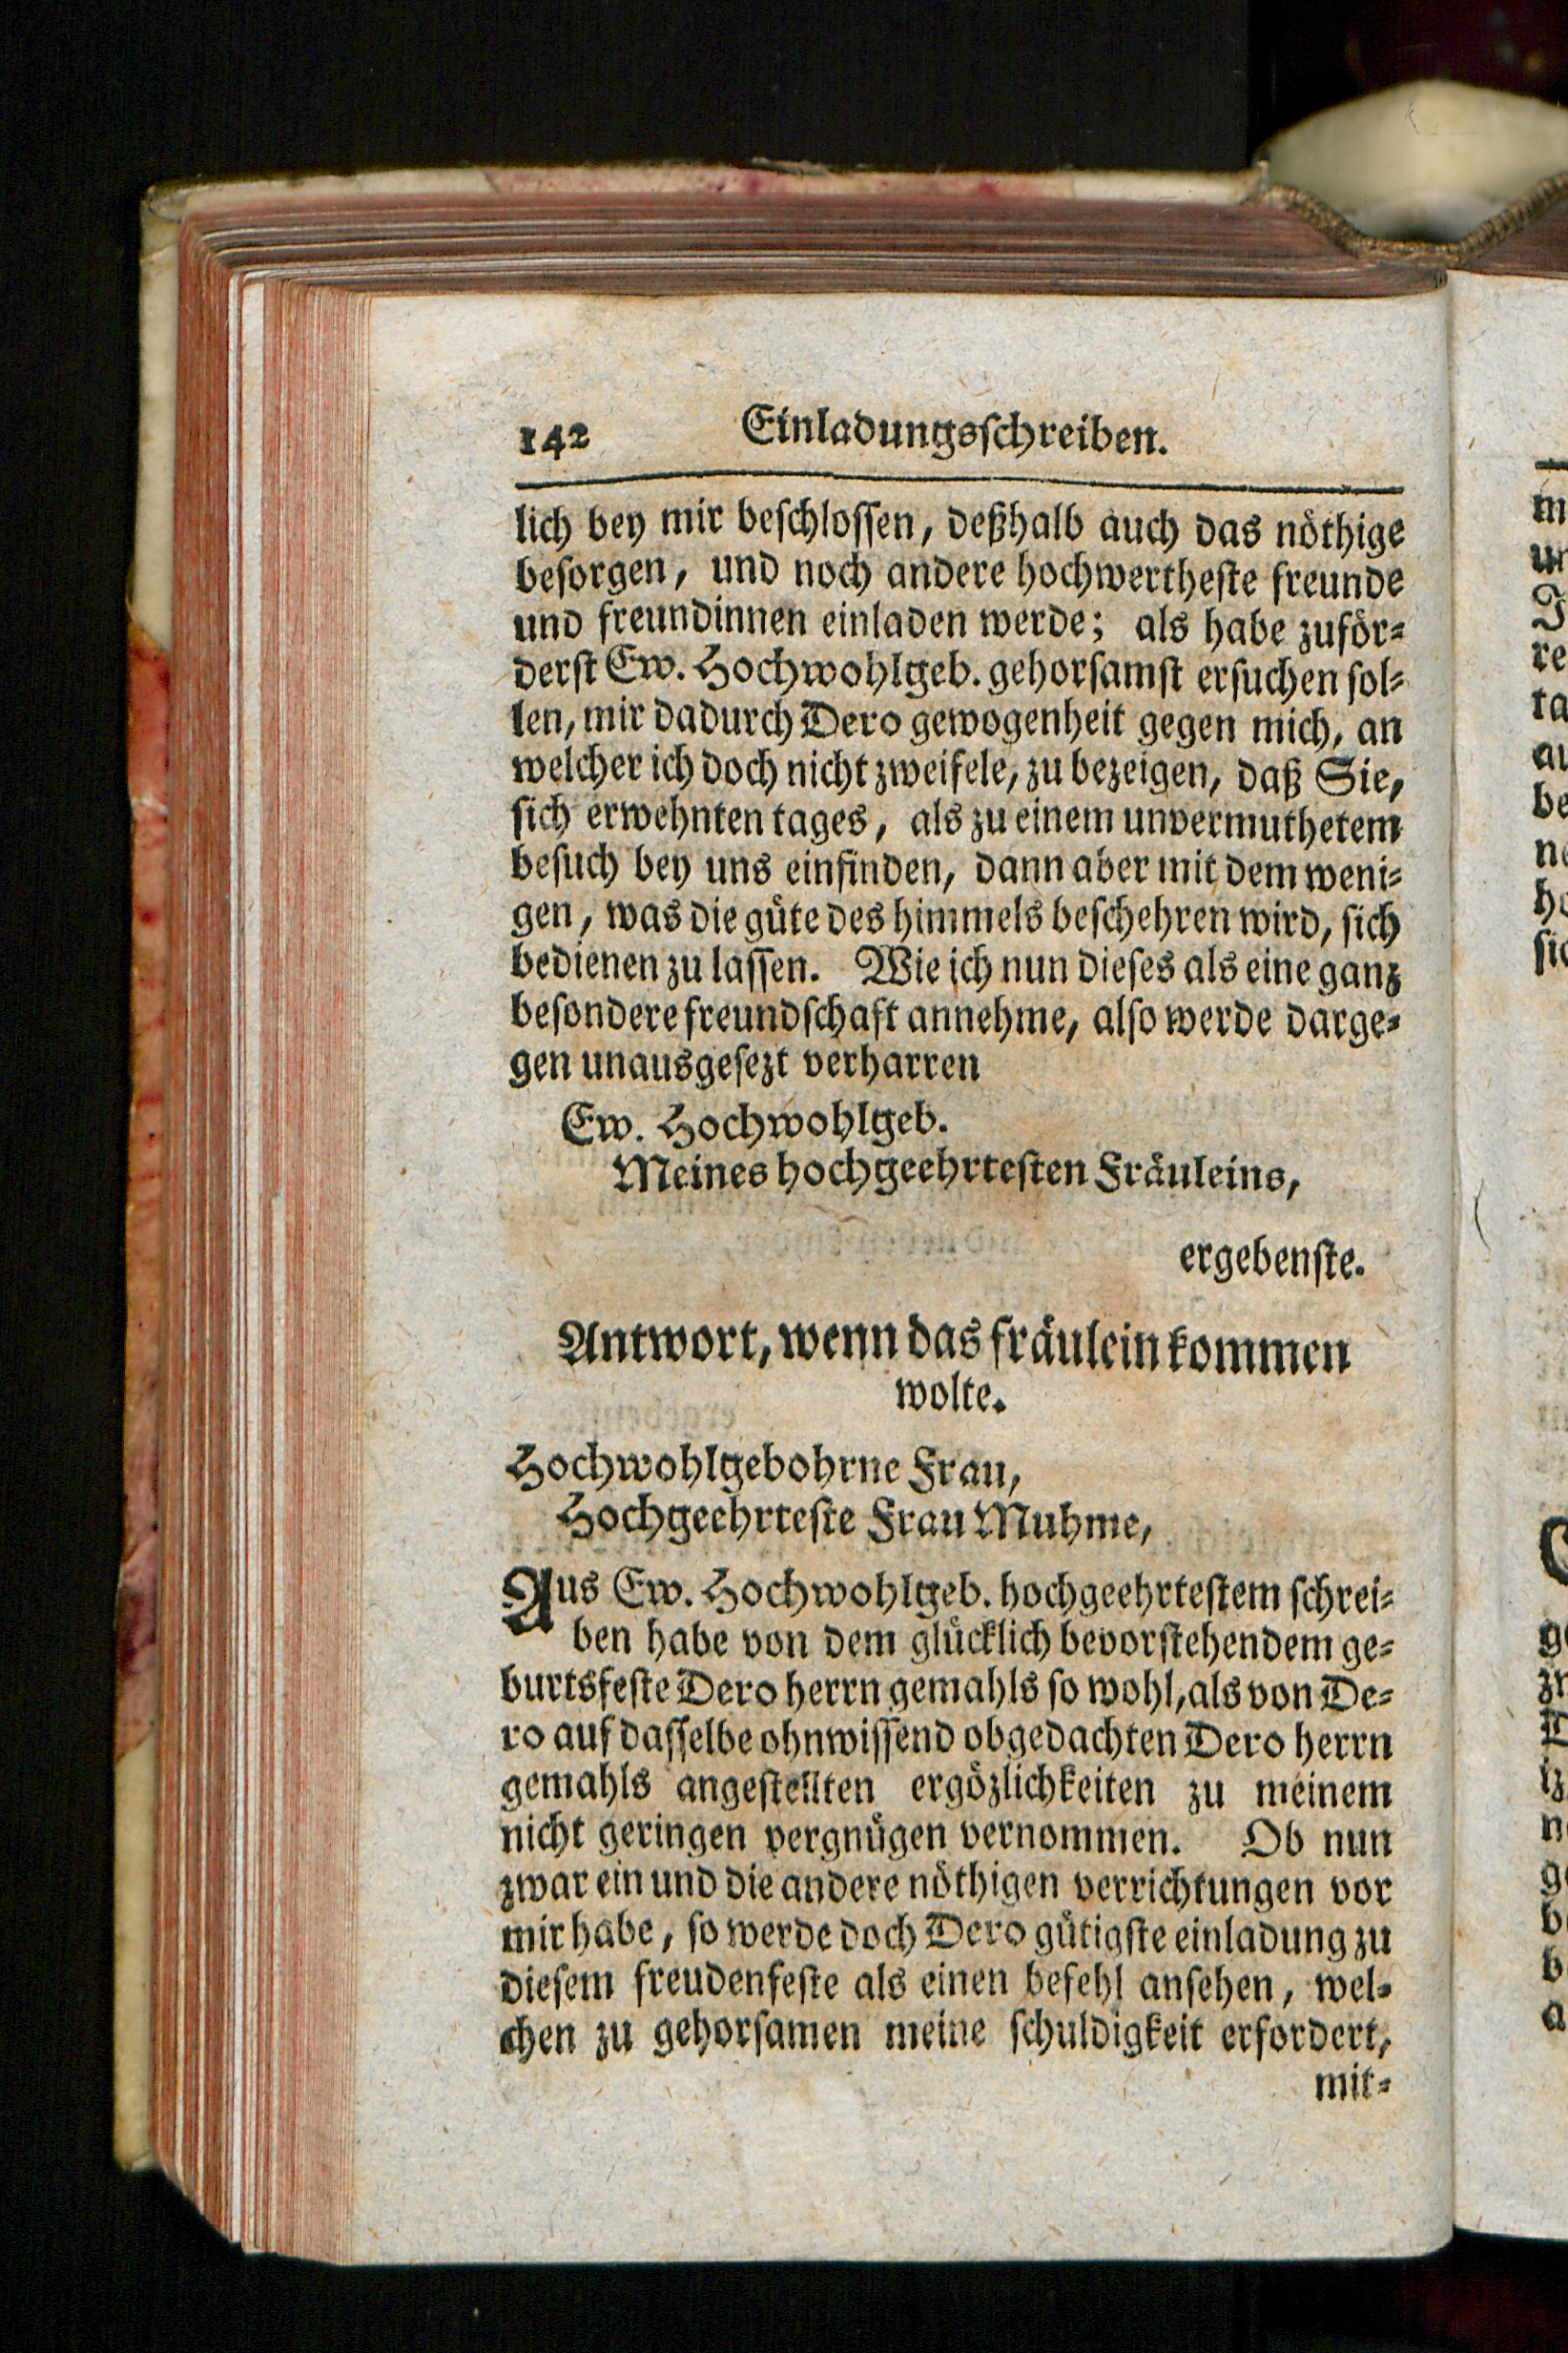 142 Einladungsschreiben.
lich bey mir beschlossen, deßhalb auch das nöthige
besorgen, und noch andere hochwertheste freunde
und freundinnen einladen werde; als habe zuför-
derst Ew. Hochwohlgeb. gehorsamst ersuchen sol-
len, mir dadurch Dero gewogenheit gegen mich, an
welcher ich doch nicht zweifele, zu bezeigen, daß Sie,
sich erwehnten tages, als zu einem unvermuthetem
besuch bey uns einfinden, dann aber mit dem weni-
gen, was die güte des himmels beschehren wird, sich
bedienen zu lassen. Wie ich nun dieses als eine ganz
besondere freundschaft annehme, also werde darge-
gen unausgesezt verharren
Ew. Hochwohlgeb.
Meines hochgeehrtesten Fräuleins,
ergebenste.
Antwort, wenn das fräulein kommen
wolte.
Hochwohlgebohrne Frau,
Hochgeehrteste Frau Muhme,
Aus Ew. Hochwohlgeb. hochgeehrtestem schrei-
ben habe von dem glücklich bevorstehendem ge-
burtsfeste Dero herrn gemahls so wohl, als von De-
ro auf dasselbe ohnwissend obgedachten Dero herrn
gemahls angestellten ergözlichkeiten zu meinem
nicht geringen vergnügen vernommen. Ob nun
zwar ein und die andere nöthigen verrichtungen vor
mir habe, so werde doch Dero gütigste einladung zu
diesem freudenfeste als einen befehl ansehen, wel-
chen zu gehorsamen meine schuldigkeit erfordert,
mit-